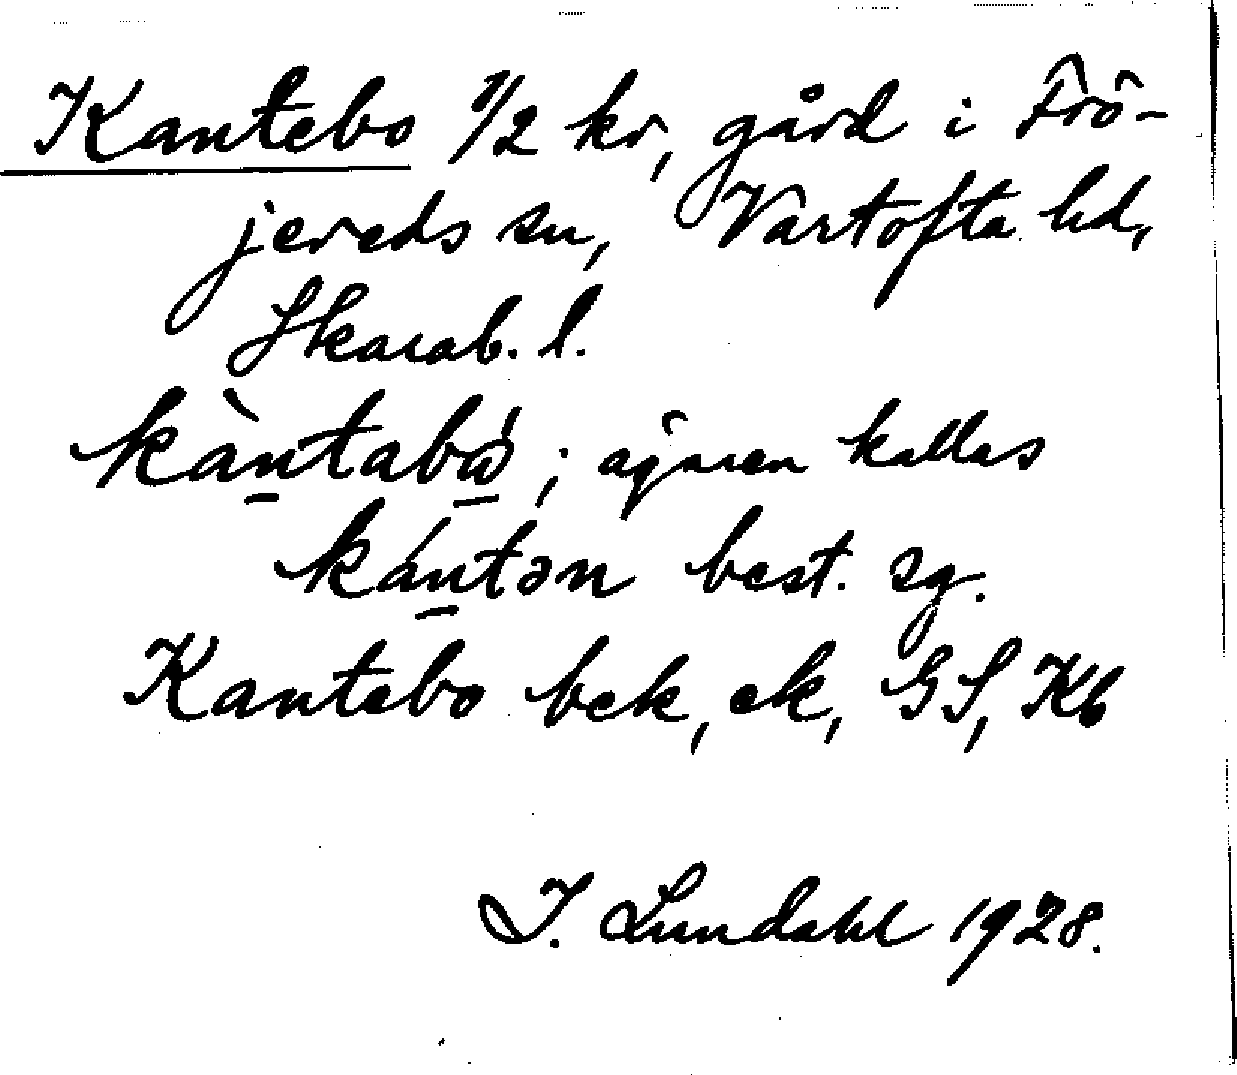 Kantebo 1/2 kr, gård i Frö-
jereds sn, Vartofta hd,
Skarab. l.
kàntabó; ägaren kallas
kántən best. sg.
Kantebo bek, ek, GS, Kb
I. Lundahl 1928.